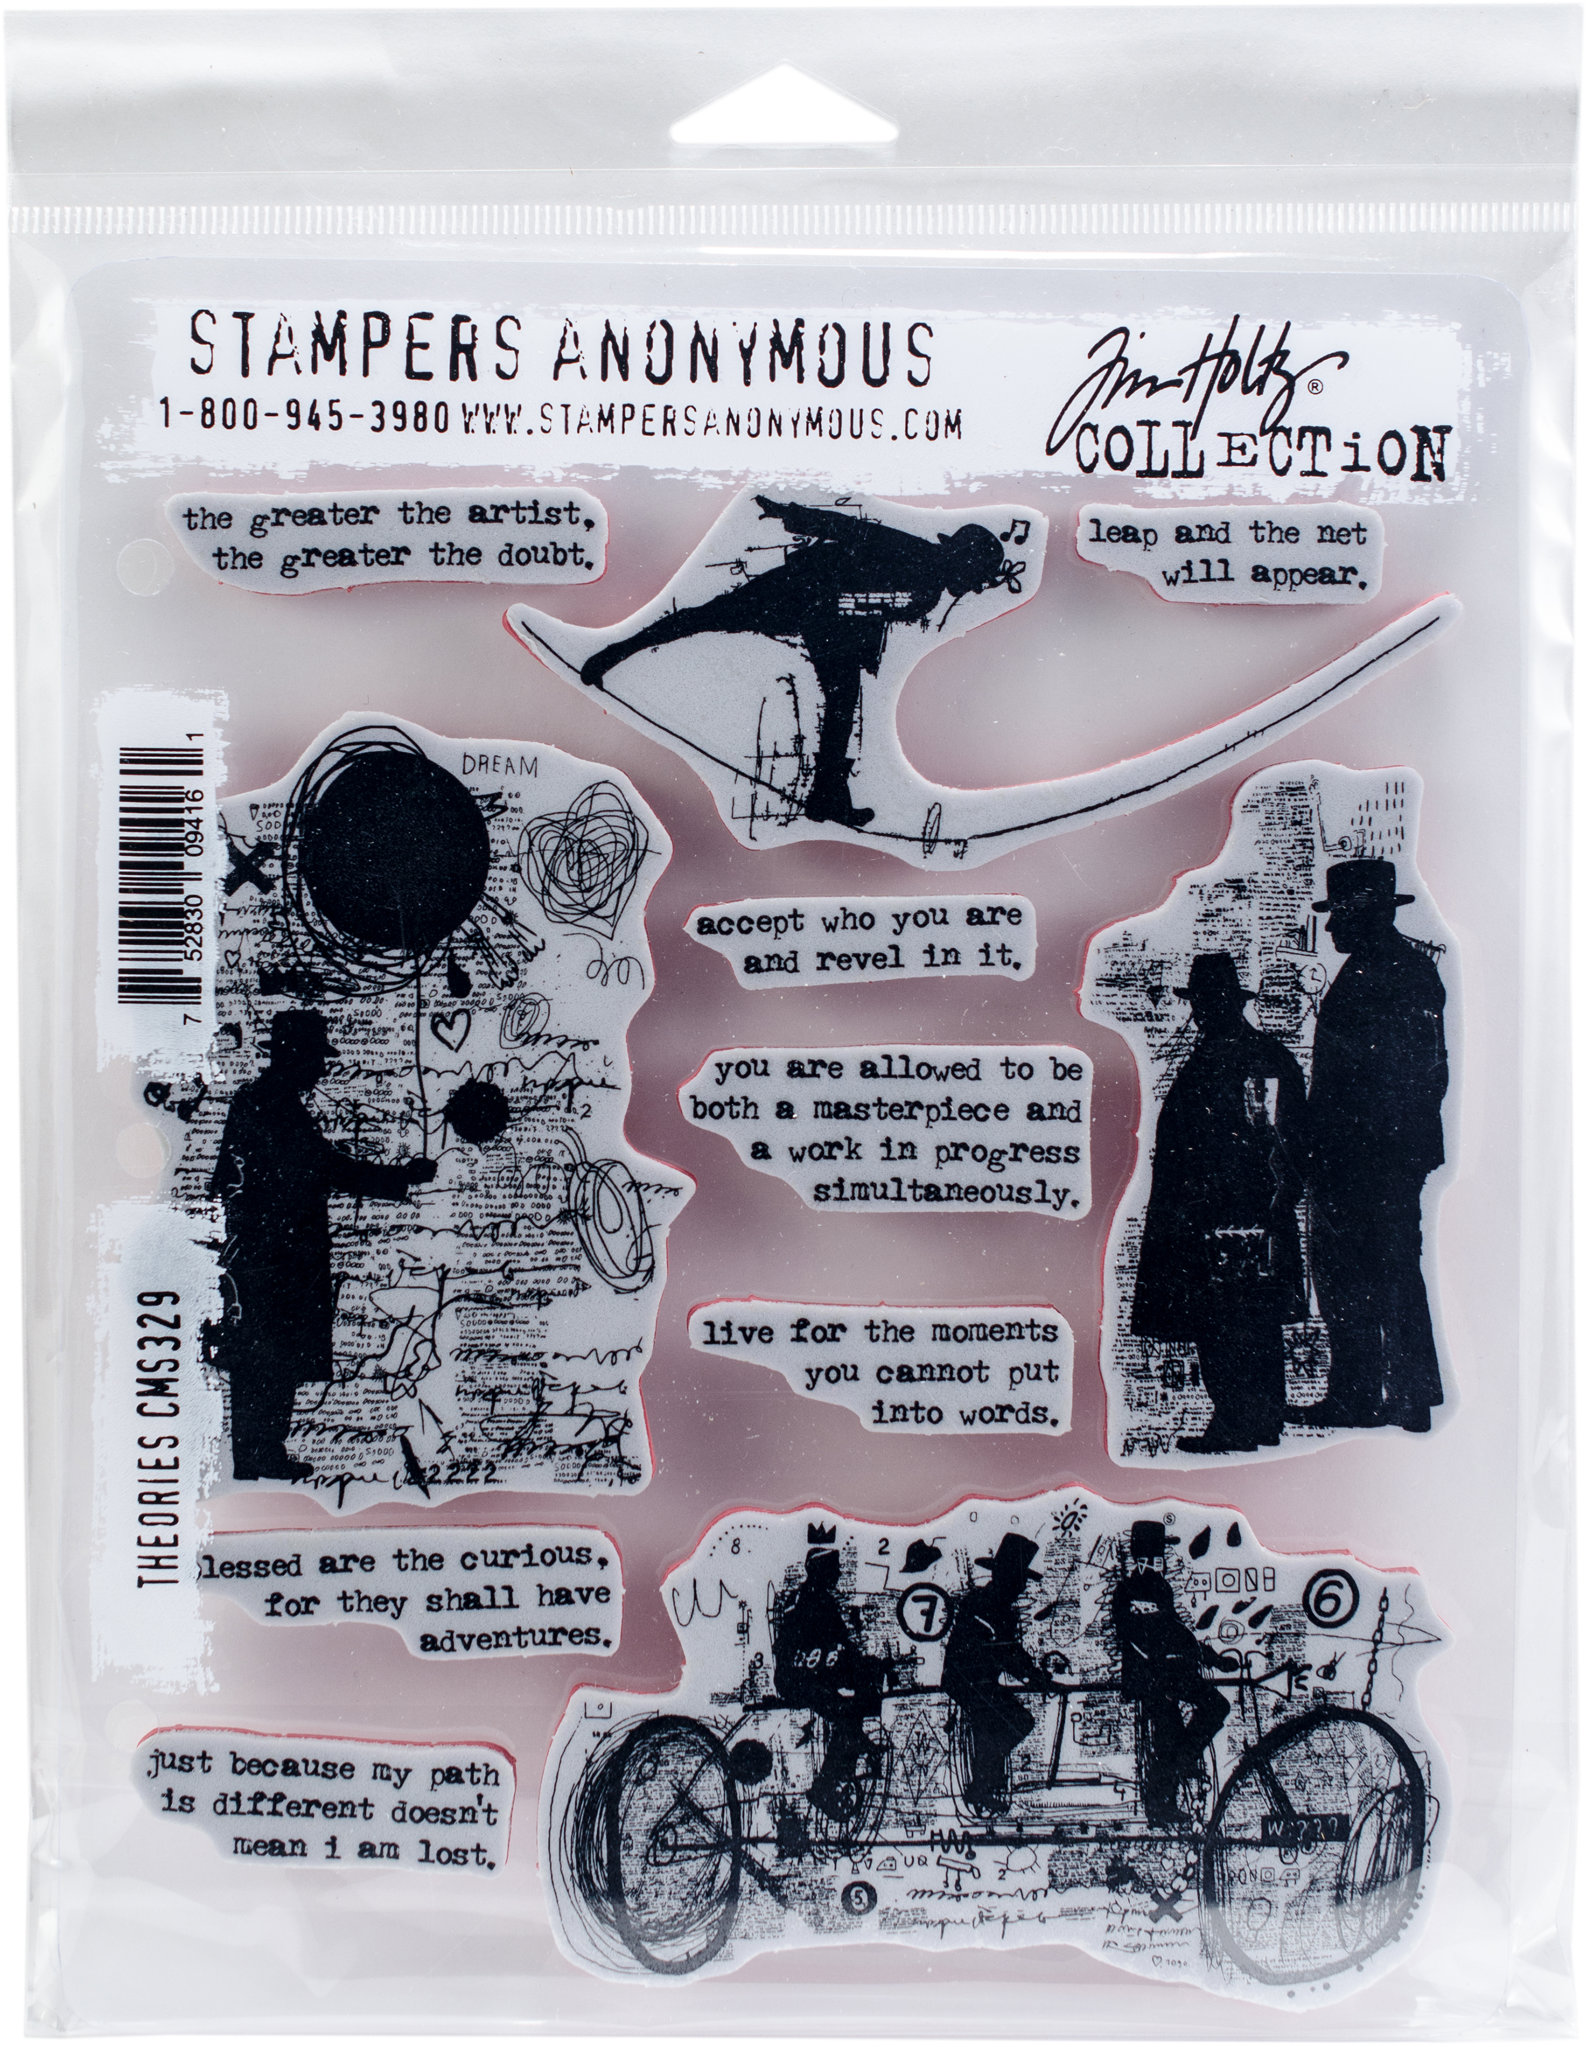 STAMPERS ANONYMOUS
1-800-945-3980 WWW.STAMPERSANONYMOUS.COM
Tim Holtz®
COLLECTION
the greater the artist,
the greater the doubt.
leap and the net
will appear.
DREAM
7 52830 09416 1
accept who you are
and revel in it.
you are allowed to be
both a masterpiece and
a work in progress
simultaneously.
live for the moments
you cannot put
into words.
THEORIES CMS329
lessed are the curious,
for they shall have
adventures.
just because my path
is different doesn't
mean i am lost.
8
2
7
6
3
2
5
2